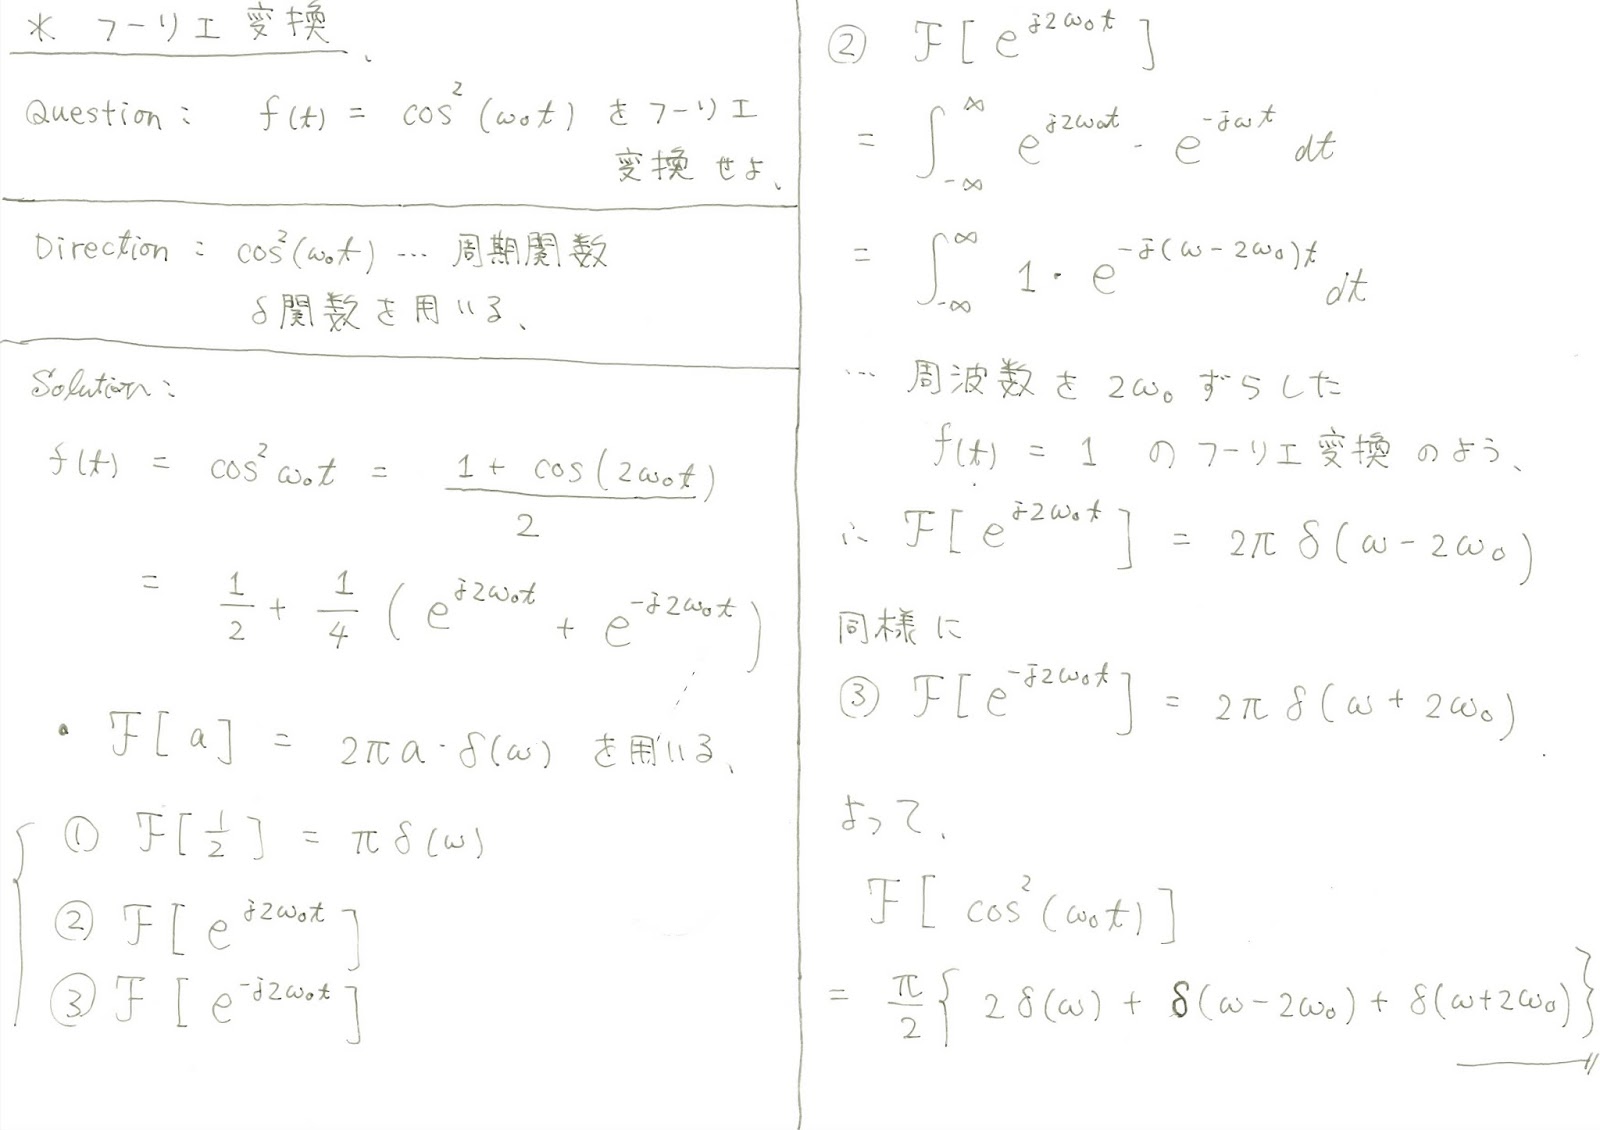 * フーリエ変換、
Question: f(t) = cos²(ω₀t) をフーリエ
変換せよ、
Direction: cos²(ω₀t) … 周期関数
δ関数を用いる、
Solution:
f(t) = cos²ω₀t = (1 + cos(2ω₀t))/2
= 1/2 + 1/4 (e^{j2ω₀t} + e^{-j2ω₀t})
• F[a] = 2πa・δ(ω) を用いる、
① F[1/2] = πδ(ω)
② F[e^{j2ω₀t}]
③ F[e^{-j2ω₀t}]
② F[e^{j2ω₀t}]
= ∫_{-∞}^{∞} e^{j2ω₀t}・e^{-jωt} dt
= ∫_{-∞}^{∞} 1・e^{-j(ω-2ω₀)t} dt
… 周波数を 2ω₀ ずらした
f(t) = 1 のフーリエ変換のよう、
∴ F[e^{j2ω₀t}] = 2πδ(ω-2ω₀)
同様に
③ F[e^{-j2ω₀t}] = 2πδ(ω+2ω₀)
よって、
F[cos²(ω₀t)]
= π/2 {2δ(ω) + δ(ω-2ω₀) + δ(ω+2ω₀)}